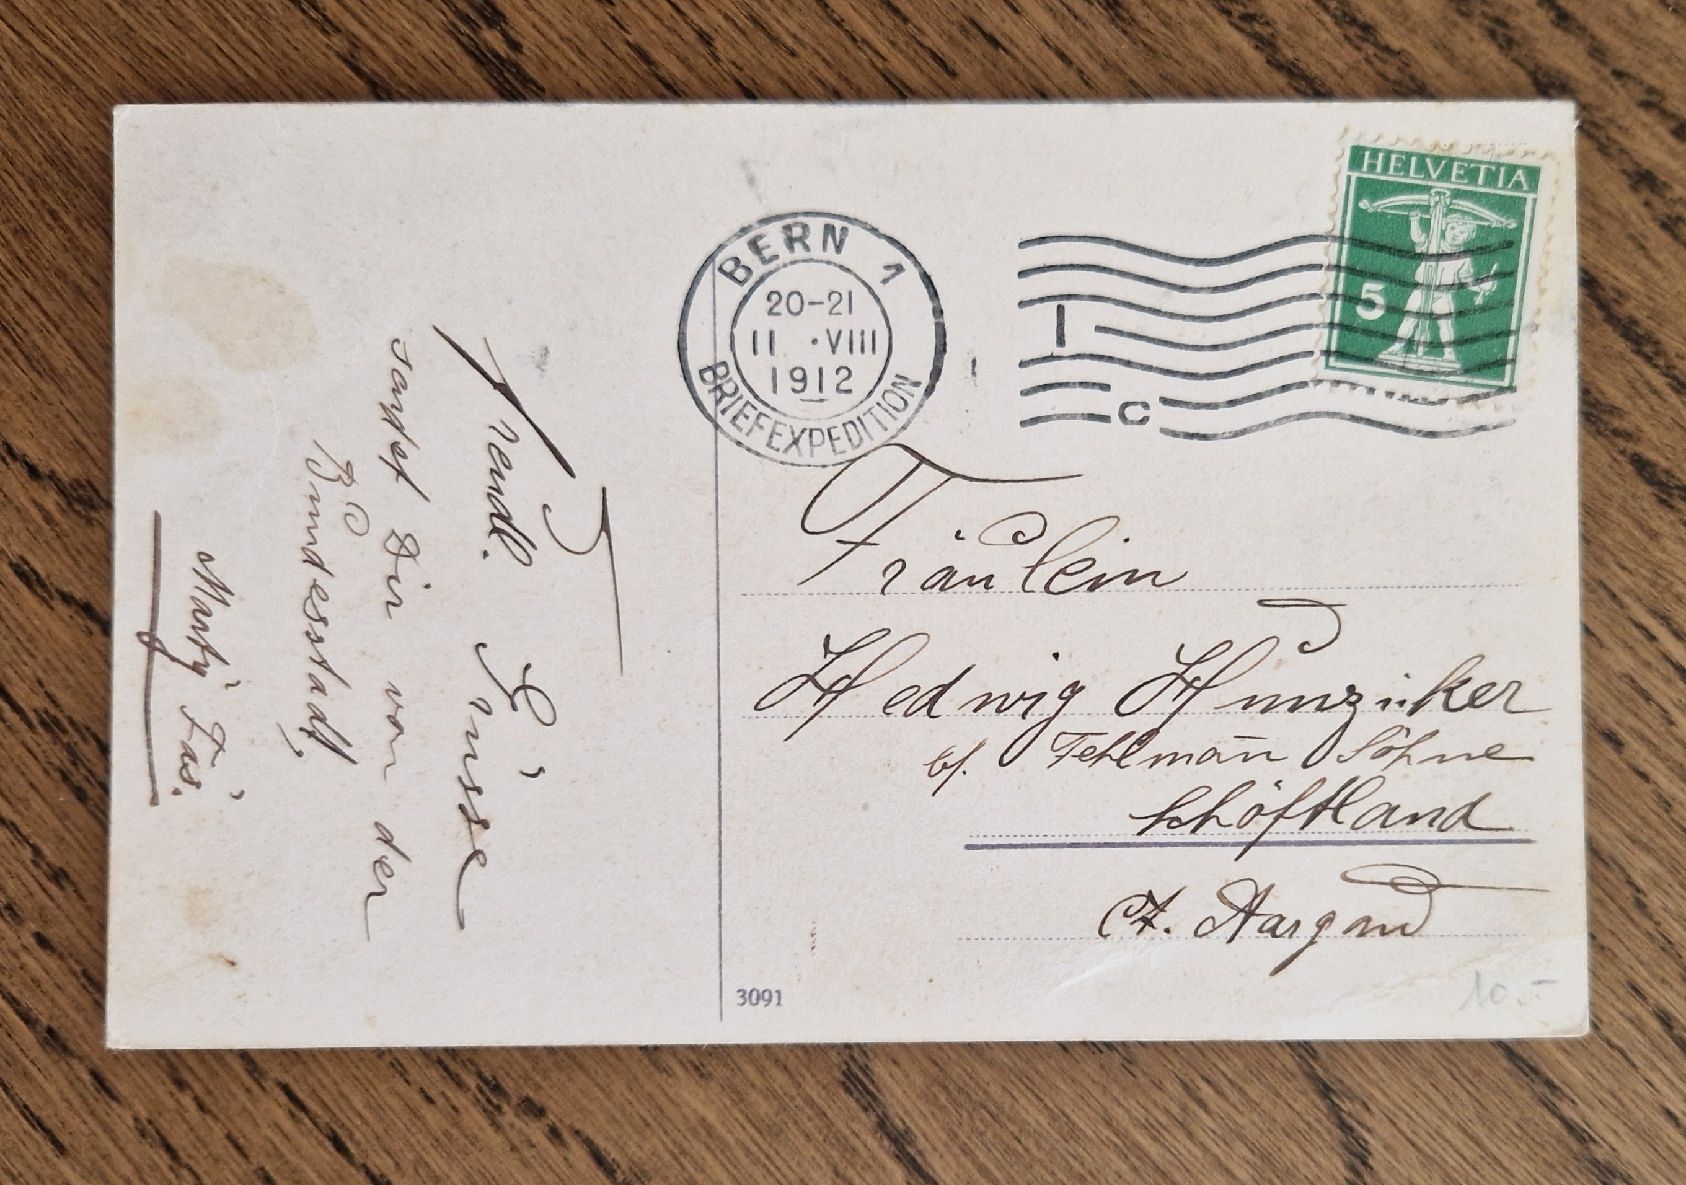 HELVETIA
5
BERN 1
20-21
11 ·VIII
1912
BRIEFEXPEDITION
I
C
Freundl. Grüsse
sendet Dir von der
Bundesstadt,
Fräulein
Hedwig Hunziker
b/. Fehlmann Söhne
Schöftland
Ct. Aargau
3091
10.-